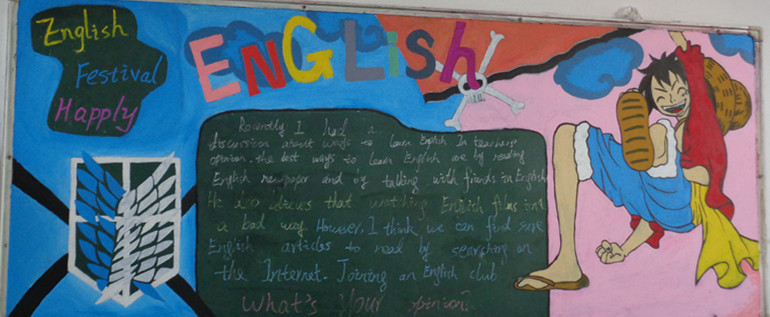 English
Festival
Happly
ENGLish
Recently I had a
discussion about ways to learn English In teachers
opinion, the best ways to learn English are by reading
English newspaper and by talking with friends in English
He also ideas that watching English films isn't
a bad way. However, I think we can find some
English articles to read by searching on
the Internet. Joining an English club
What's Your opinion?